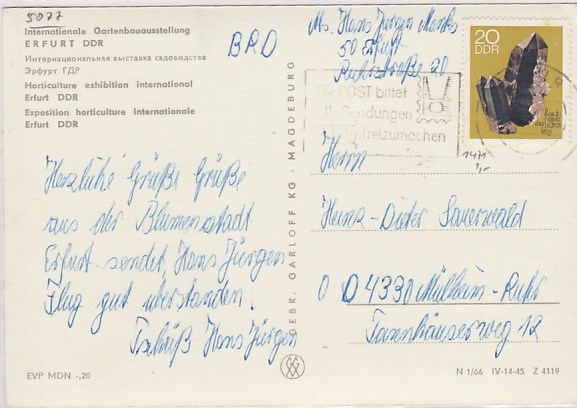 5077
Internationale Gartenbauausstellung
ERFURT DDR
Интернациональная выставка садоводства
Эрфурт ГДР
Horticulture exhibition international
Erfurt DDR
Exposition horticulture internationale
Erfurt DDR
BRD
Hans Jürgen
50 Erfurt
20
20
DDR
Die POST bittet
Sendungen
freizumachen
1471
1,-
Herzliche Grüße Grüße
aus der Blumenstadt
Erfurt sendet Hans Jürgen
Flug gut überstanden!
Tschüß Hans Jürgen
GEBR. GARLOFF KG · MAGDEBURG
Herrn
Heinz-Dieter Sauerwald
D 4330 Mülheim-Ruhr
Tannhäuserweg 12
EVP MDN -,20
N 1/66 IV-14-45 Z 4119